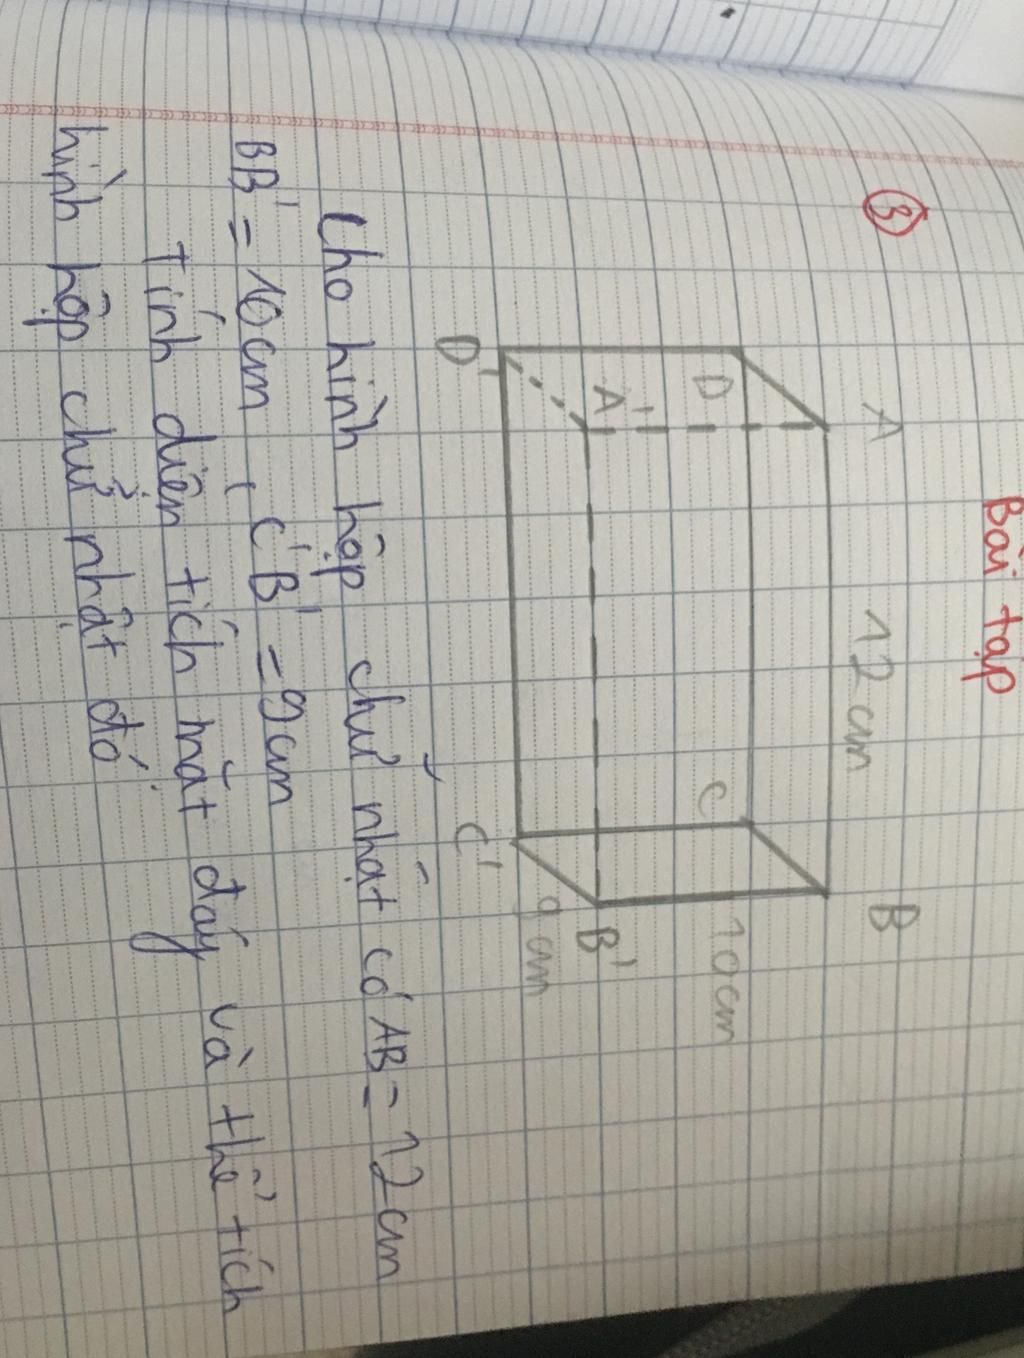 Bài tạp
③
A 12cm B
D C
10cm
A' B'
9cm
D' C'
Cho hình hộp chữ nhật có AB = 12cm
BB' = 10cm, C'B' = 9cm
Tính diện tích mặt đáy và thể tích
hình hộp chữ nhật đó.